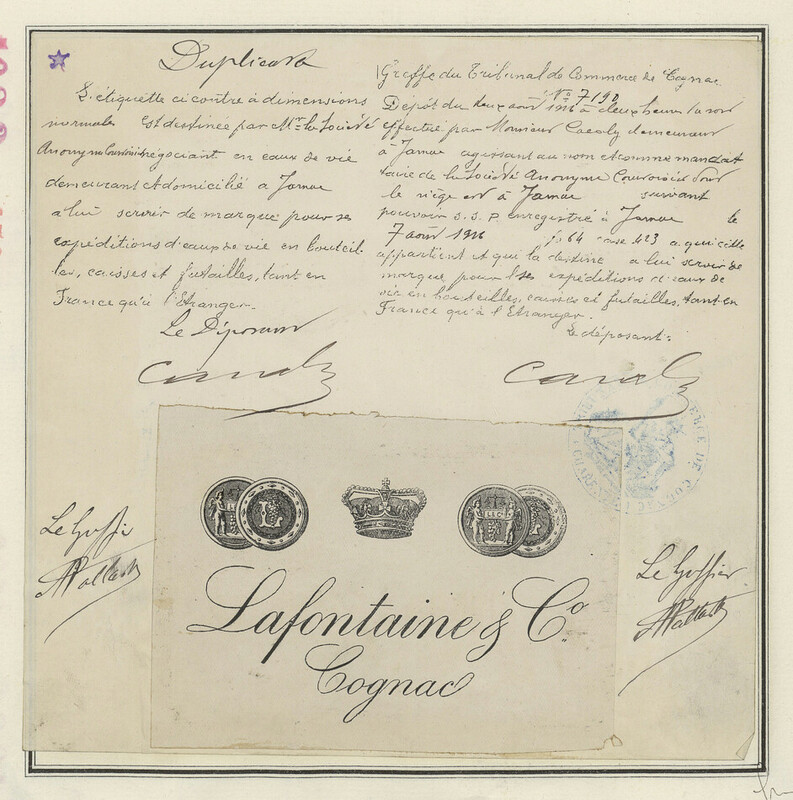 Duplicata
L'étiquette ci contre à dimensions
normales est destinée par Mr. la Société
Anonyme Courvoisier négociant en eaux de vie
demeurant et domicilié à Jarnac
à lui servir de marque pour ses
expéditions d'eaux de vie en bouteil-
les, caisses et futailles, tant en
France qu'à l'Etranger.
Le Déposant
Greffe du Tribunal de Commerce de Cognac
No 7190
Dépôt du deux août 1916 à deux heures du soir
effectué par Monsieur demeurant
à Jarnac agissant au nom et comme mandat
taire de la Société Anonyme Courvoisier dont
le siège est à Jarnac suivant
pouvoir S.S.P. enregistré à Jarnac le
7 août 1916 fo 64 case 423 a qui cette
appartient et qui la destine a lui servir de
marque pour ses expéditions d'eaux de
vie en bouteilles, caisses et futailles, tant en
France qu'à l'Etranger.
Le déposant:
Le Greffier
Le Greffier
Lafontaine & Co
Cognac